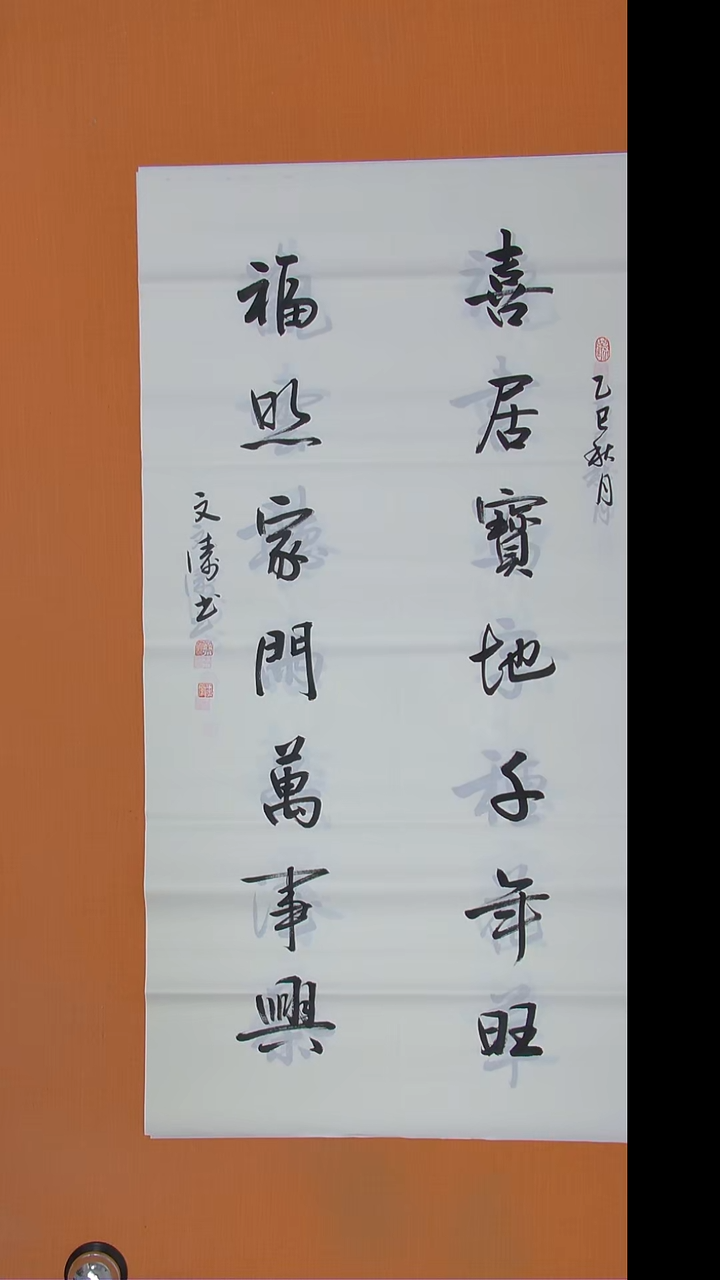 乙巳秋月
喜居寶地千年旺
福照家門萬事興
文涛书